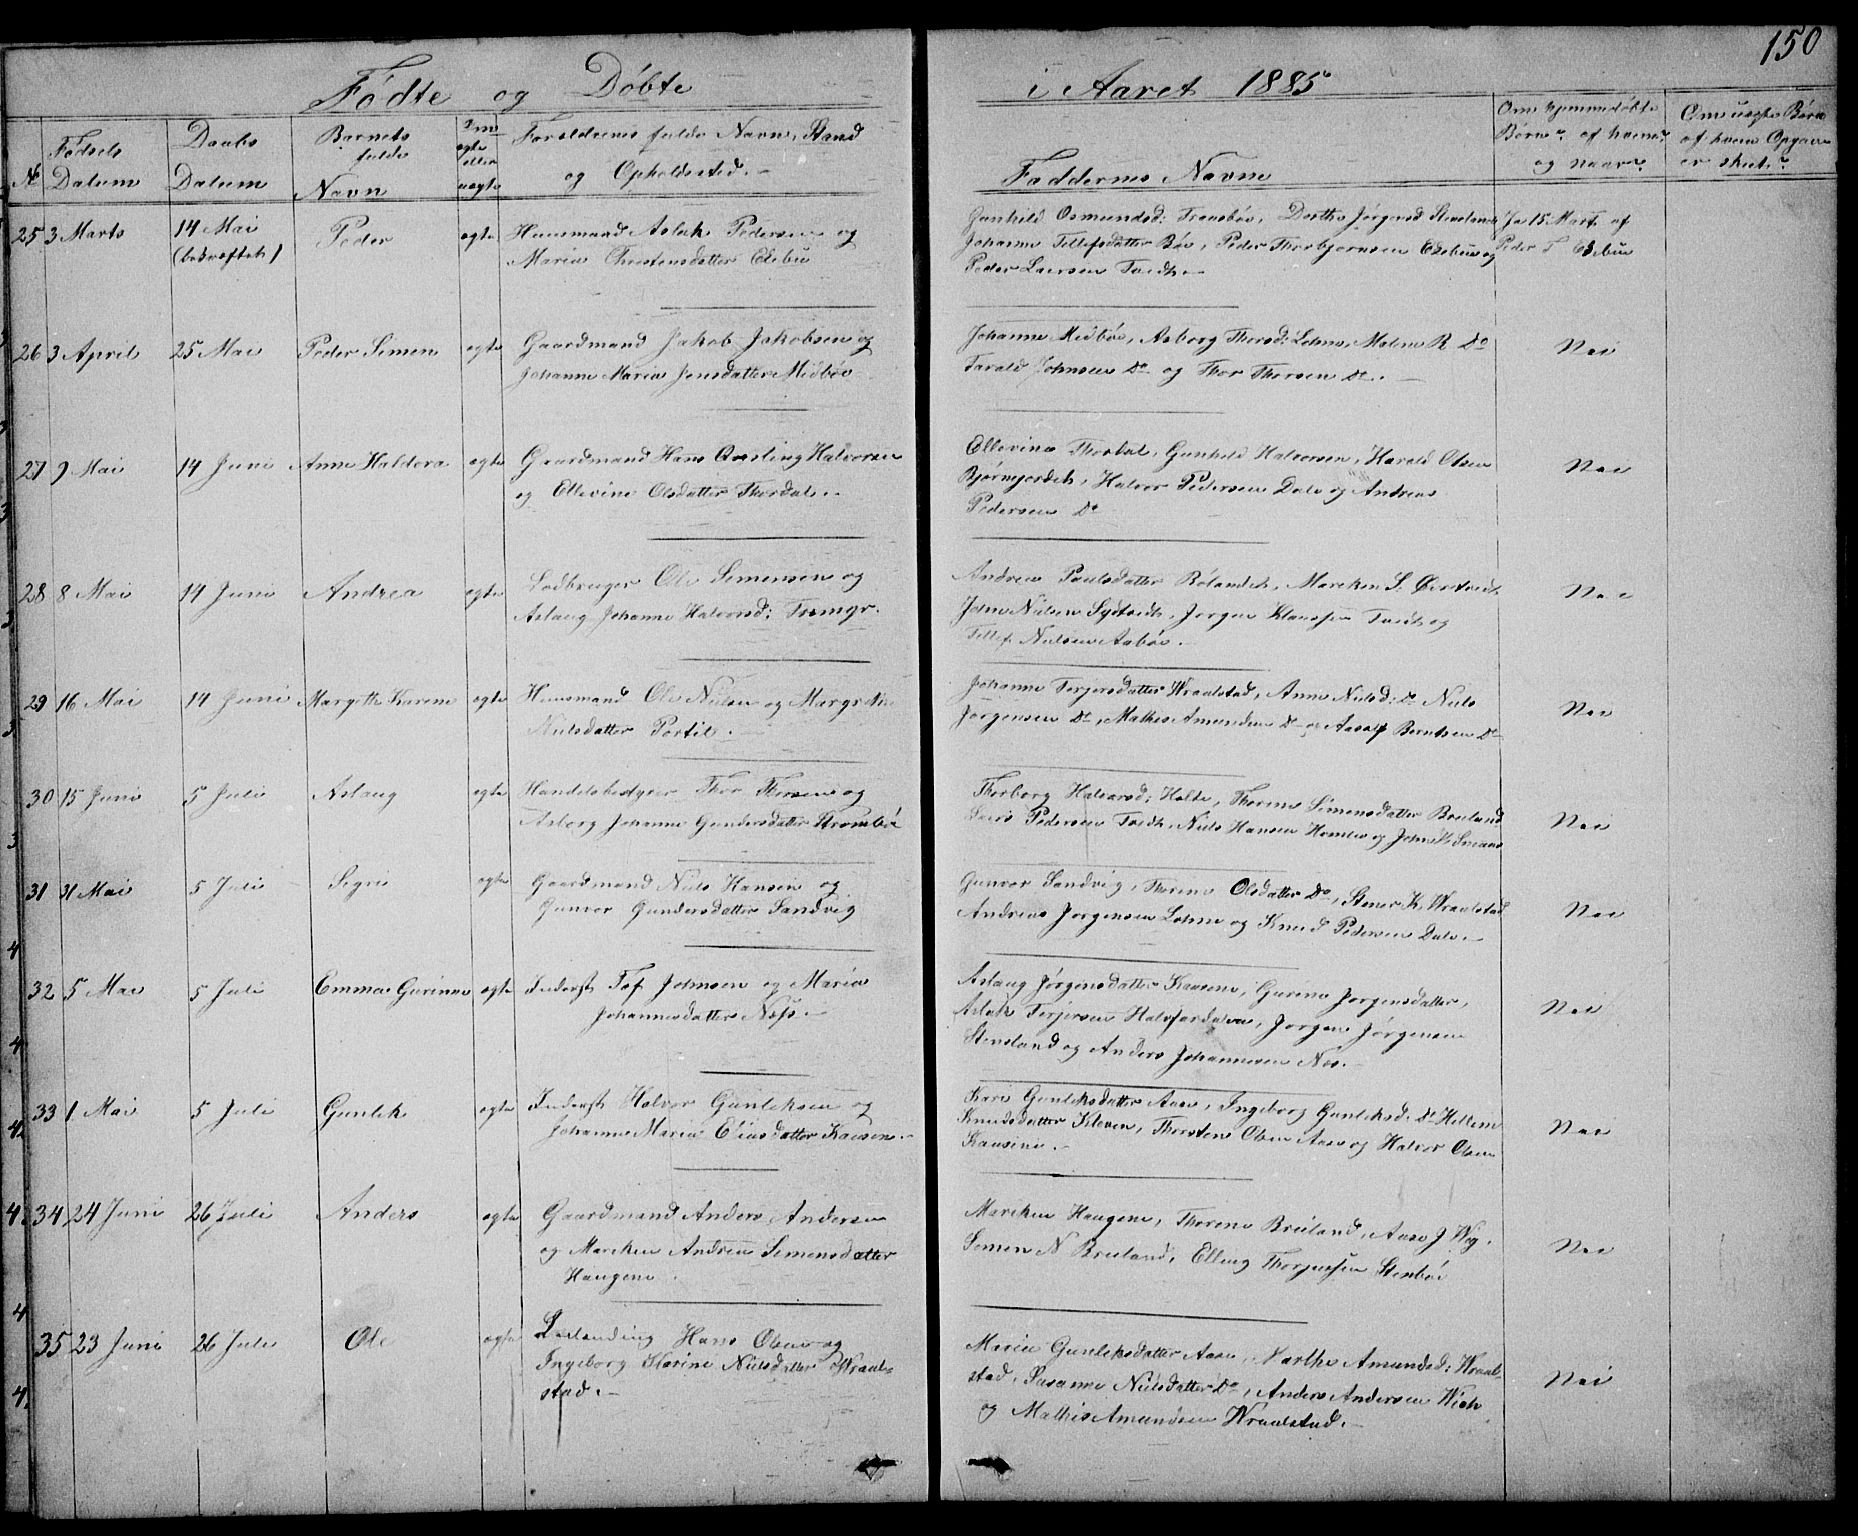 150
Fødte og Døbte i Aaret 1885
No
Fødsels Datum
Daabs Datum
Barnets fulde Navn
Om ægte eller uægte
Forældrenes fulde Navne, Stand og Opholdssted.
Faddernes Navne
Om hjemmedøbte Børn af hvem og naar
Om uægte Børn af hvem Opgaven er skeet
25 3 Marts 14 Mai Peder ægte Huusmand Aslak Pedersen og
(bekræftet) Maria Christensdatter Egebu
Gunhild Osmundsd: Trovsbøe, Dorthe Jørgensd
Johanne Tellefsdatter Bøe, Peder Thorbjørnsen Egebu og
Peder Larsen Tvedt.
Ja 15 Marts af
Peder T Egebu
26 3 April 25 Mai Peder Simon ægte Gaardmand Jakob Jakobsen og
Johanne Maria Jensdatter Midbøe
Johanne Midbøe, Asborg Thorsd: Lohne, Malene R Do
Tarald Johnsen Do og Thor Thorsen Do.
Nei
27 9 Mai 14 Juni Anne Haldora ægte Gaardmand Hans Halvorsen
og Ellevine Olsdatter Thordal.
Ellevine Thordal, Gunhild Halvorsen, Harald Olsen
Bjørnjordet, Halvor Pedersen Dale og Andreas
Pedersen Do
Nei
28 8 Mai 14 Juni Andrea ægte Lodbruger Ole Simonsen og
Aslaug Johanne Halvorsd:
Andrea Paulsdatter Røland, Mareken S.
John Nielsen Sydtvedt, Jørgen Klausen Tvedt og
Tellef Nielsen Aabøe.
Nei
29 16 Mai 14 Juni Margethe Karine ægte Huusmand Ole Nielsen og Margrethe
Nielsdatter Portil.
Johanne Terjersdatter Wraalstad, Anne Nielsd: Do Niels
Jørgensen Do, Mathis Amundsen Do og Aasulf Berntsen Do
Nei
30 15 Juni 5 Juli Aslaug ægte Handelsbestyrer Thor Thorsen og
Asborg Johanne Gundersdatter Strømbøe
Thorborg Halvorsd: Holte, Thorine Simonsdatter Breiland
Lars Pedersen Tvedt, Niels Hansen Homle og John
Nei
31 31 Mai 5 Juli Sigri ægte Gaardmand Niels Hansen og
Gunvor Gundersdatter Sandvig
Gunvor Sandvig, Thorine Olsdatter Do, Stener K. Wraalstad
Andreas Jørgensen Lohne og Knud Pedersen Dale.
Nei
32 5 Mai 5 Juli Emma Gurine ægte Inderst Tof Johnsen og Maria
Johannesdatter Næss.
Aslaug Jørgensdatter Kausene, Gurine Jørgensdatter,
Aslak Terjersen Halvfardalen, Jørgen Jørgensen
Stensland og Anders Johannesen Nes.
Nei
33 1 Mai 5 Juli Gunlek ægte Inderst Halvor Gunleksen og
Johanne Maria Eliasdatter Kausene.
Kari Gunleksdatter Aase, Ingeborg Gunleksd: Do Hellene
Knudsdatter Kleven, Thorsten Olsen Aase og Halvor Olsen
Kausene.
Nei
34 24 Juni 26 Juli Anders ægte Gaardmand Anders Andersen
og Mareken Andrea Simonsdatter
Haugene.
Mareken Haugene, Thorine Breiland, Aase J Weg.
Simon N Breiland, Elling Thorjussen Stenbøe
Nei
35 23 Juni 26 Juli Ole ægte Hans Olsen og
Ingeborg Karine Nielsdatter Wraal-
stad.
Maria Gunleksdatter Aase, Marthe Amundsd: Wraal-
stad, Susanne Nielsdatter Do, Anders Andersen Wieh
og Mathis Amundsen Wraalstad.
Nei